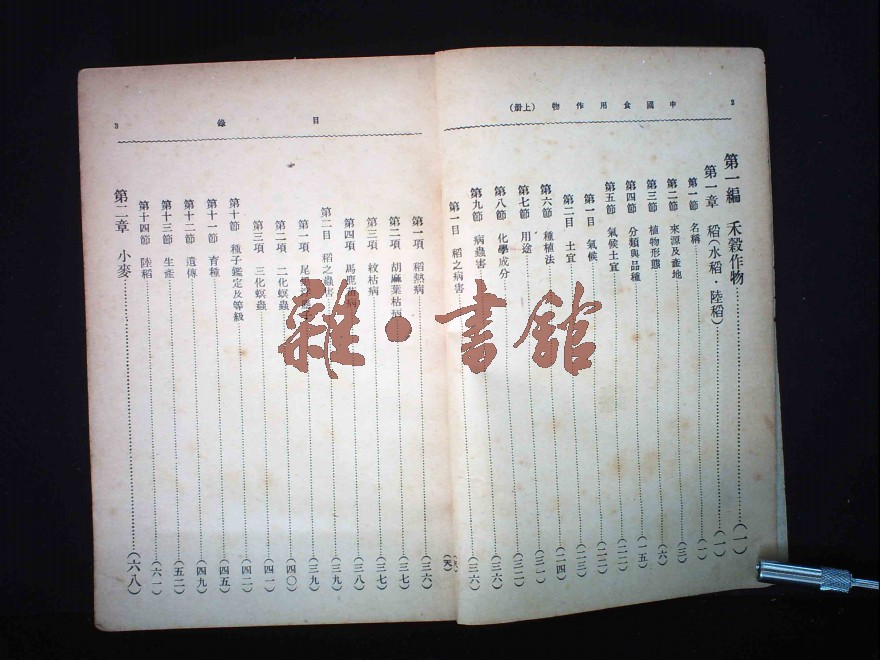 2 中國食用作物(上册)
第一編 禾穀作物(一)
第一章 稻(水稻・陸稻)(一)
第一節 名稱(一)
第二節 來源及產地(三)
第三節 植物形態(六)
第四節 分類與品種(一五)
第五節 氣候土宜(二二)
第一目 氣候(二二)
第二目 土宜(二三)
第六節 種植法(二四)
第七節 用途(三一)
第八節 化學成分(三二)
第九節 病蟲害(三六)
第一目 稻之病害
目錄 3
第一項 稻熱病(三六)
第二項 胡麻葉枯病(三七)
第三項 紋枯病(三七)
第四項 馬鹿苗病(三八)
第二目 稻之蟲害(三九)
第一項(三九)
第二項 二化螟蟲(四〇)
第三項 三化螟蟲(四一)
第十節 種子鑑定及等級(四二)
第十一節 育種(四五)
第十二節 遺傳(四九)
第十三節 生產(五二)
第十四節 陸稻(六一)
第二章 小麥(六八)
雜・書館